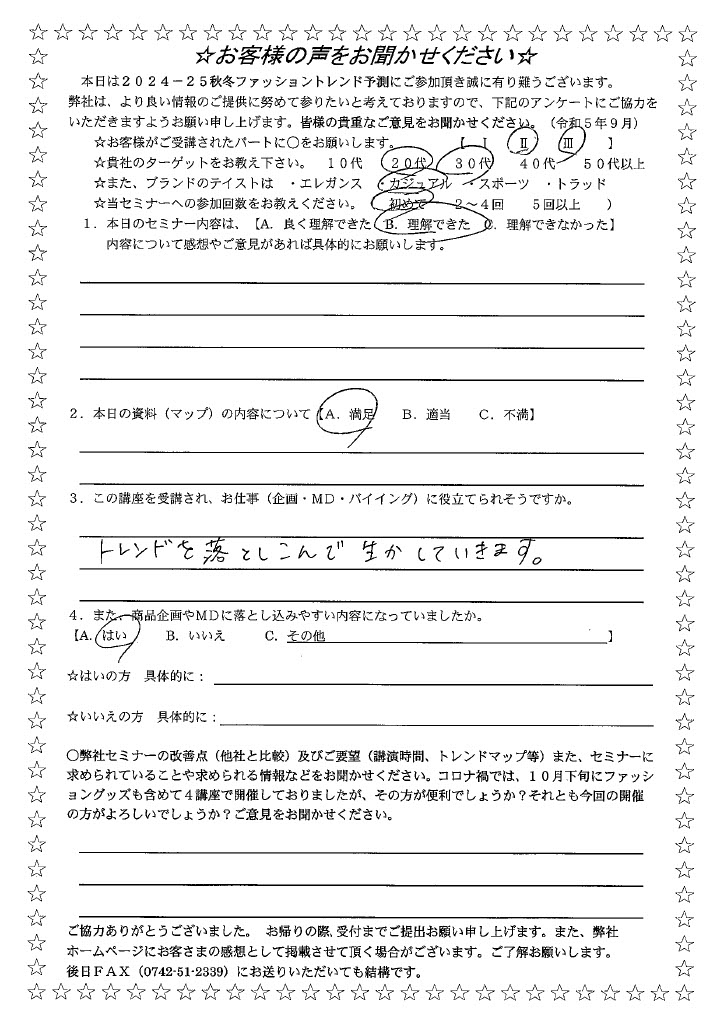 ☆お客様の声をお聞かせください☆
本日は2024－25秋冬ファッショントレンド予測にご参加頂き誠に有り難うございます。
弊社は、より良い情報のご提供に努めて参りたいと考えておりますので、下記のアンケートにご協力を
いただきますようお願い申し上げます。皆様の貴重なご意見をお聞かせください。（令和5年9月）
☆お客様がご受講されたパートに○をお願いします。　【　Ⅰ　Ⅱ　Ⅲ　】
☆貴社のターゲットをお教え下さい。　10代　20代　30代　40代　50代以上
☆また、ブランドのテイストは　・エレガンス　・カジュアル　・スポーツ　・トラッド
☆当セミナーへの参加回数をお教えください。　（　初めて　2～4回　5回以上　）
1．本日のセミナー内容は、【A．良く理解できた　B．理解できた　C．理解できなかった】
内容について感想やご意見があれば具体的にお願いします。
2．本日の資料（マップ）の内容について【A．満足　B．適当　C．不満】
3．この講座を受講され、お仕事（企画・MD・バイイング）に役立てられそうですか。
トレンドを落としこんで生かしていきます。
4．また、商品企画やMDに落とし込みやすい内容になっていましたか。
【A．はい　B．いいえ　C．その他　】
☆はいの方　具体的に：
☆いいえの方　具体的に：
○弊社セミナーの改善点（他社と比較）及びご要望（講演時間、トレンドマップ等）また、セミナーに
求められていることや求められる情報などをお聞かせください。コロナ禍では、10月下旬にファッシ
ョングッズも含めて4講座で開催しておりましたが、その方が便利でしょうか？それとも今回の開催
の方がよろしいでしょうか？ご意見をお聞かせください。
ご協力ありがとうございました。　お帰りの際、受付までご提出お願い申し上げます。また、弊社
ホームページにお客さまの感想として掲載させて頂く場合がございます。ご了解お願いします。
後日FAX（0742-51-2339）にお送りいただいても結構です。